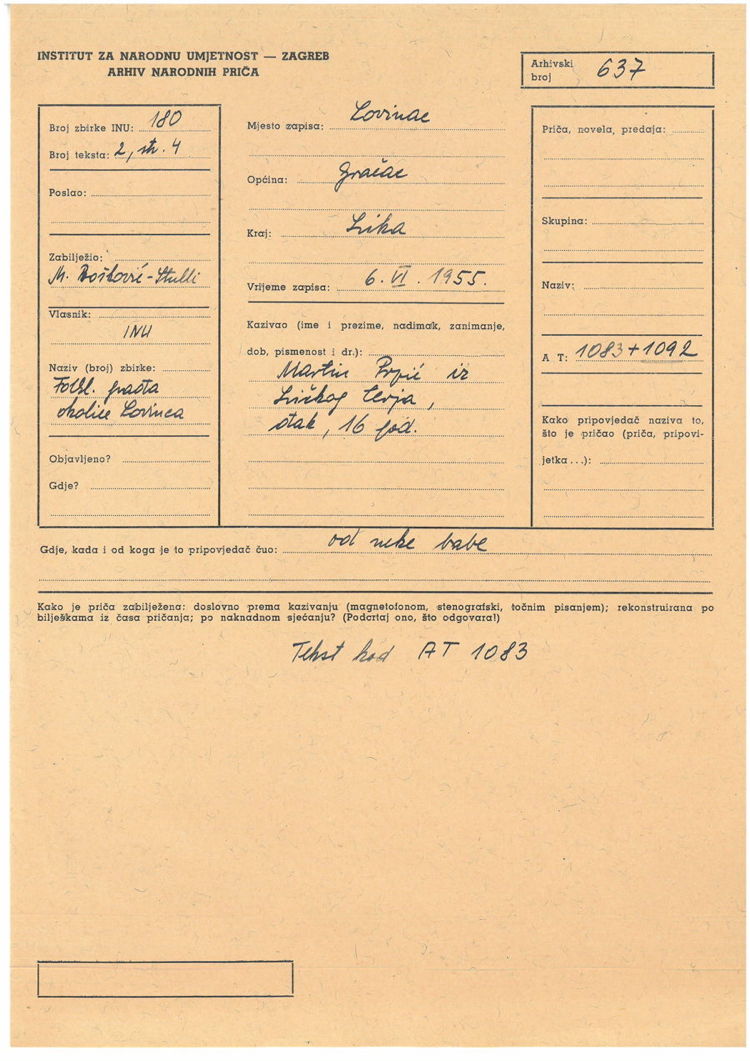 INSTITUT ZA NARODNU UMJETNOST — ZAGREB
ARHIV NARODNIH PRIČA
Arhivski broj 637
Broj zbirke INU: 180
Broj teksta: 2, str. 4
Poslao:
Zabilježio:
M. Bošković-Stulli
Vlasnik:
INU
Naziv (broj) zbirke:
Folkl. građa
okolice Lovinca
Objavljeno?
Gdje?
Mjesto zapisa: Lovinac
Općina: Gračac
Kraj: Lika
Vrijeme zapisa: 6. VI. 1955.
Kazivao (ime i prezime, nadimak, zanimanje,
dob, pismenost i dr.):
Martin Prpić iz
Ličkog Cerja,
đak, 16 god.
Priča, novela, predaja:
Skupina:
Naziv:
A T: 1083+1092
Kako pripovjedač naziva to,
što je pričao (priča, pripovi-
jetka...):
Gdje, kada i od koga je to pripovjedač čuo: od neke babe
Kako je priča zabilježena: doslovno prema kazivanju (magnetofonom, stenografski, točnim pisanjem); rekonstruirana po
bilješkama iz časa pričanja; po naknadnom sjećanju? (Podcrtaj ono, što odgovara!)
Tekst kod AT 1083